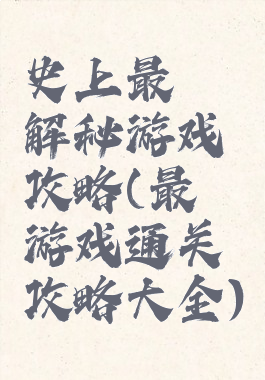 史上最
解秘游戏
攻略(最
游戏通关
攻略大全)